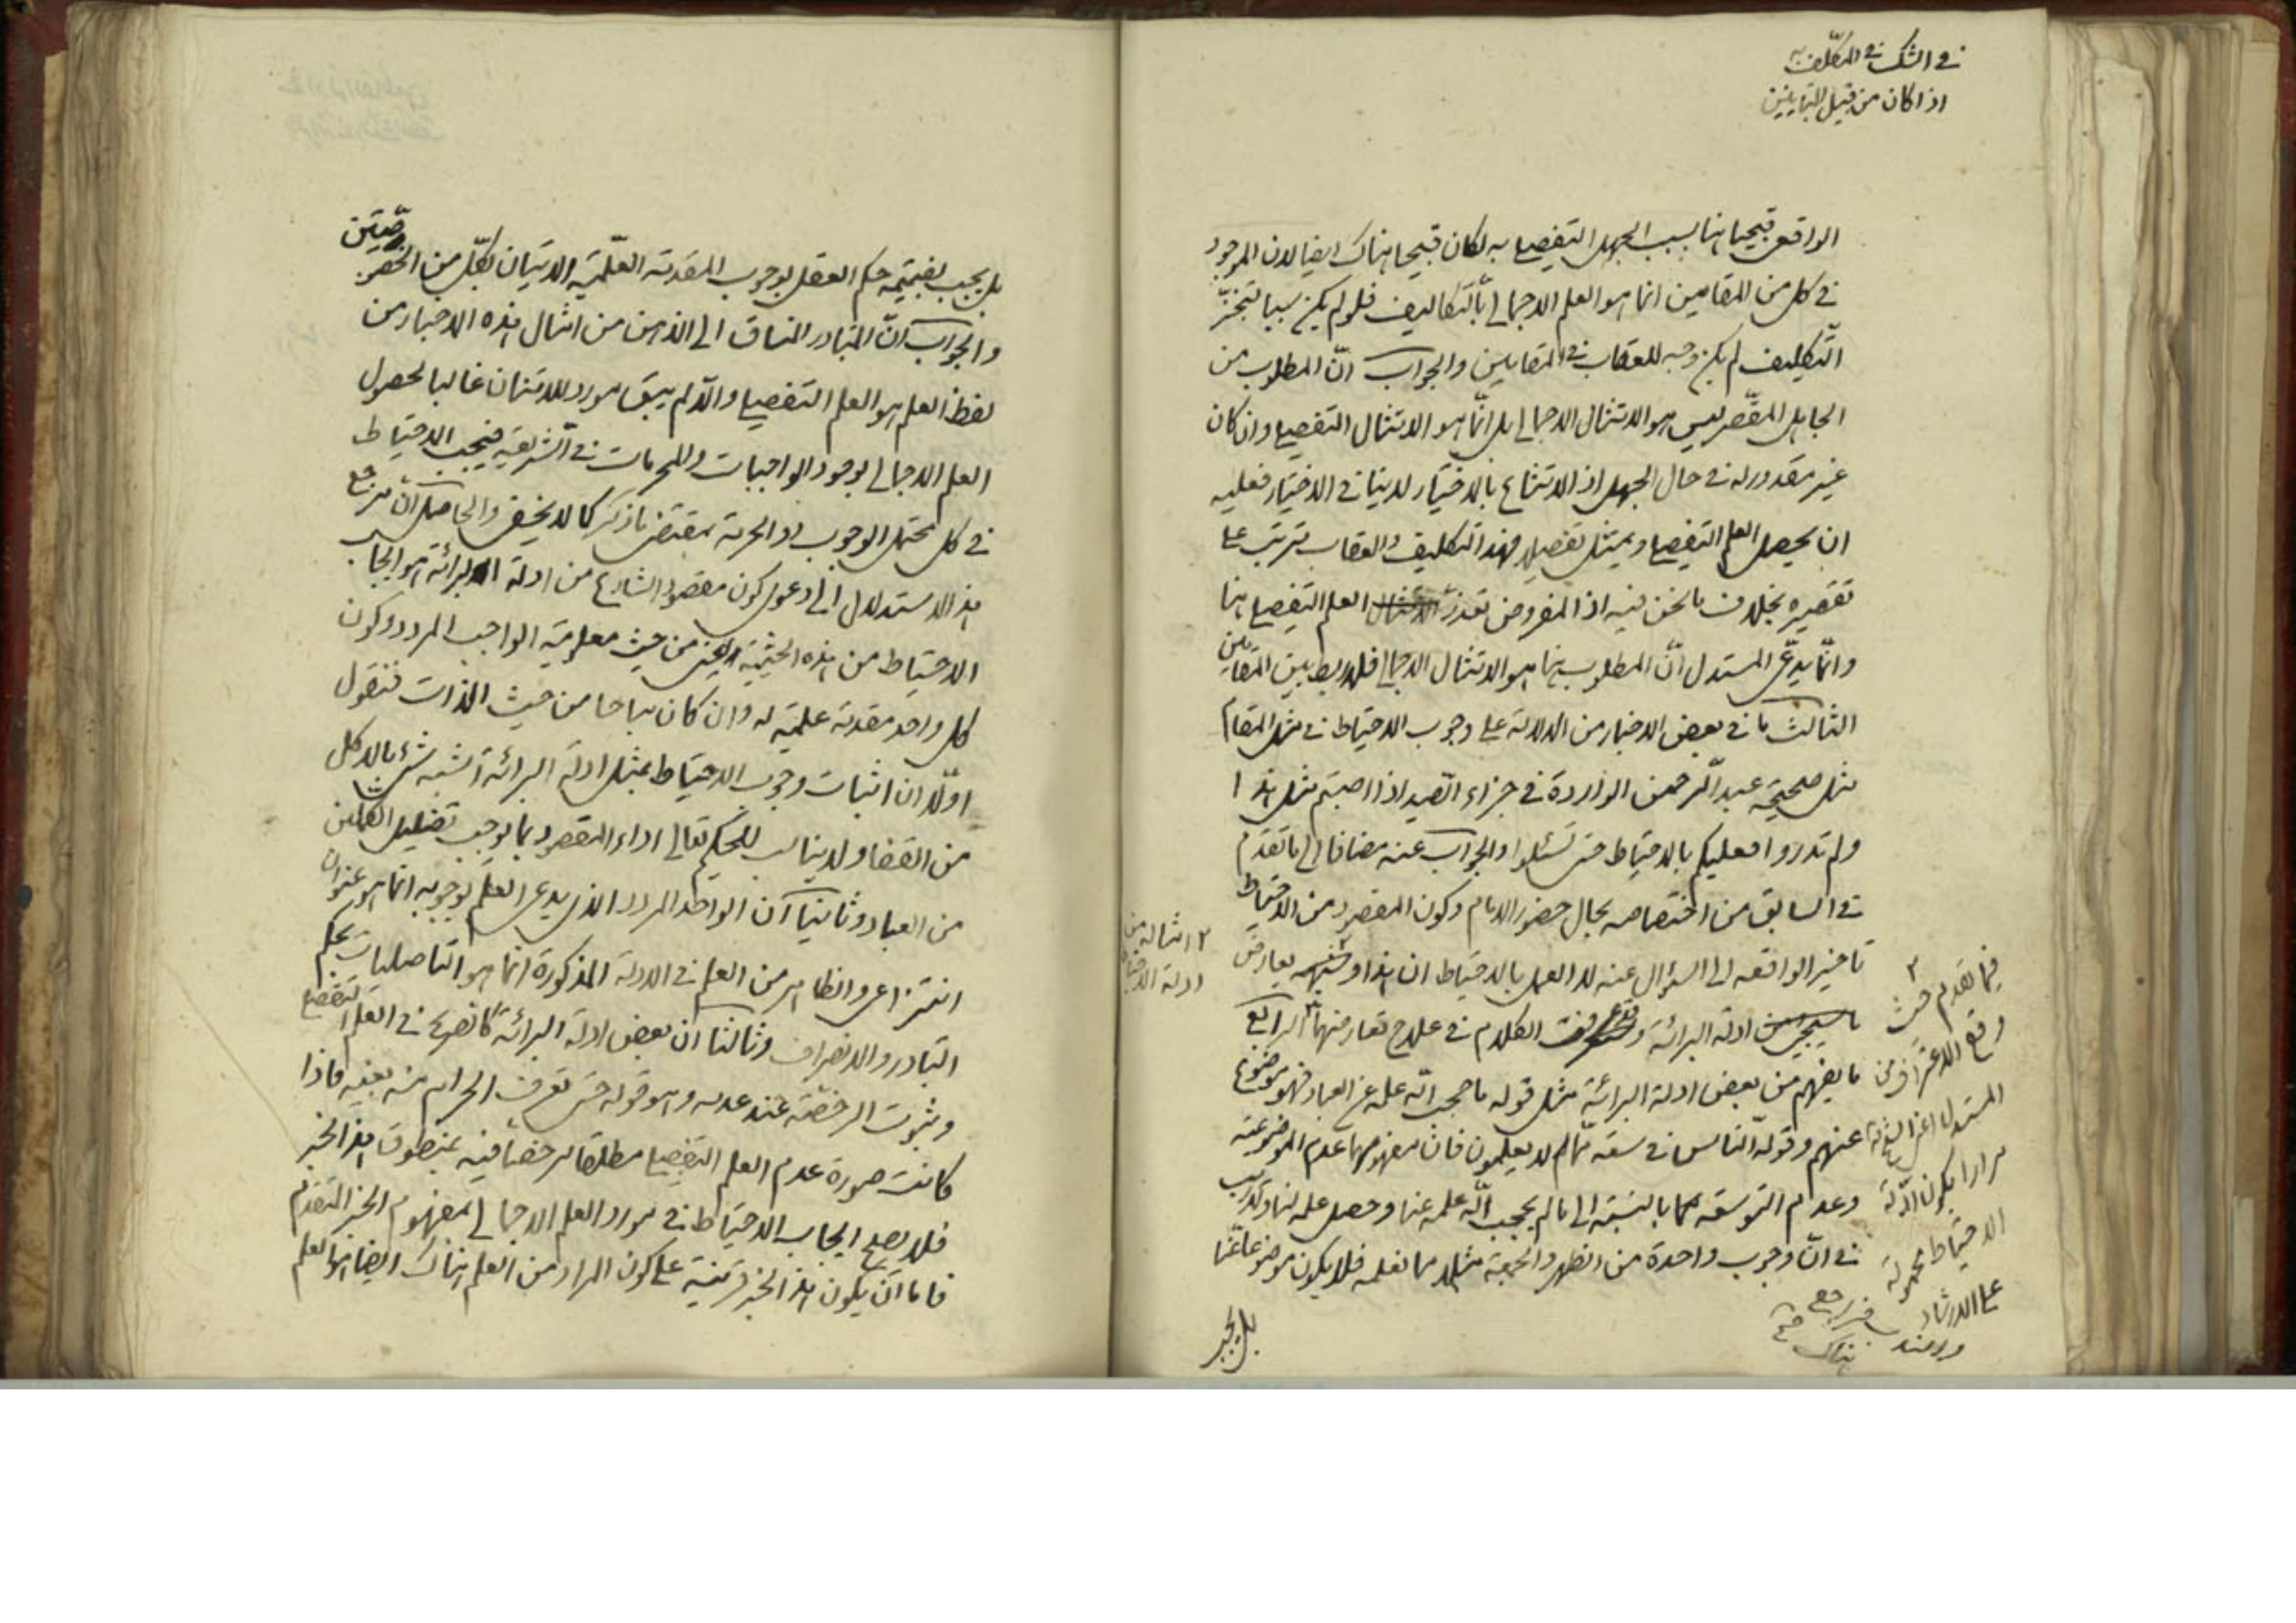 في الشك في المكلف به
اذا كان من قبيل المتباينين
الواقع قبيحا هنا بسبب الجهل التفصيلي به لكان قبيحا هناك ايضا لان الموجود
في كل من المقامين انما هو العلم الاجمالي بالتكاليف فلو لم يكن سببا لتنجّز
التّكليف لم يكن وجه للعقاب في المقامين والجواب انّ المطلوب من
الجاهل المقّصر ليس هو الامتثال الاجمالي بل انّما هو الامتثال التفصيلي وان كان
غير مقدور له في حال الجهل اذ الامتناع بالاختيار لا ينافي الاختيار فعليه
ان يحصل العلم التفصيلي ويمتثل تفصيلا فهذا التكليف والعقاب يترتب على
تقصيره بخلاف ما نحن فيه اذ المفروض تعذّر العلم التفصيلي هنا
وانّما يدّعي المستدل انّ المطلوب منها هو الامتثال الاجمالي فلا ربط بين المقامين
الثالث ما في بعض الاخبار من الدلالة على وجوب الاحتياط في مثل المقام
مثل صحيحة عبد الرّحمن الواردة في جزاء الصّيد اذا اصبتم مثل هذا
ولم تدروا فعليكم بالاحتياط حتى تسئلوا والجواب عنه مضافا الى ما تقدم
في السابق من اختصاصه بحال حضور الامام وكون المقصود من الاحتياط
تاخير الواقعه الى السؤال عنه لا العمل بالاحتياط ان هذا وشبهه يعارض
ادلة البرائة الكلام في علاج تعارضهما الرابع
ما يفهم من بعض ادلة البرائة مثل قوله ما حجب الله علمه عن العباد فهو موضوع
عنهم وقوله النّاس في سعة ممّا لم لا يعلمون فان مفهومهما عدم الموضوعية
وعدم التوسعة بالنسبة الى ما لم يحجب الله علمه عنا وحصل علمه لنا ولا ريب
في انّ وجوب واحدة من الظهر والجمعة مثلا مما نعلمه فلا يكون موضوعا عنّا
بل يجب
٢ امثاله من
ادلة الاحتياط
٣
فيما تقدم حيث
وقع الاعتراف من
المستدل
مرارا بكون ادلّة
الاحتياط محمولة
على الارشاد
فراجع
هناك صح
بل يجب بضميمة حكم العقل بوجوب المقدمة العلّمية الاتيان بكلّ من الخصوصيّتين
والجواب انّ المتبادر المنساق الى الذهن من امثال هذه الاخبار من
لفظ العلم هو العلم التفصيلي والّا لم يبق مورد للامتنان غالبا لحصول
العلم الاجمالي بوجود الواجبات والمحرمات في الشّريعة فيجب الاحتياط
في كل محتمل الوجوب او الحرمة بمقتضى ما ذكر كما لا يخفى والحاصل انّ مرجع
هذا الاستدلال الى دعوى كون مقصود الشارع من ادلة البرائة هو ايجاب
الاحتياط من هذه الحيثية من حيث معلومية الواجب المردد وكون
كل واحد مقدمة علمية له وان كان مباحا من حيث الذات فنقول
اوّلا ان اثبات وجوب الاحتياط بمثل ادلة البرائة اشبه شئ بالاكل
من القفا ولا يناسب للحكيم تعالى اداء المقصود بما يوجب تضليل
من العباد وثانيا ان الواحد المردد الذي يدعى العلم بوجوبه انما هو عنوان
انتزاعى والظاهر من العلم في الادلة المذكورة انما هو التاصليات بحكم
التبادر والانصراف وثالثا ان بعض ادلة البرائة كالصريح في العلم التفصيلي
وثبوت الرخصة عند عدمه وهو قوله حتى تعرف الحرام منه بعينه فاذا
كانت صورة عدم العلم التفصيلي مطلقا مرخصا فيه بمنطوق هذا الخبر
فلا يصح ايجاب الاحتياط في مورد العلم الاجمالي بمفهوم الخبر المتقدم
فاما ان يكون هذا الخبر قرينة على كون المراد من العلم هناك ايضا هو العلم